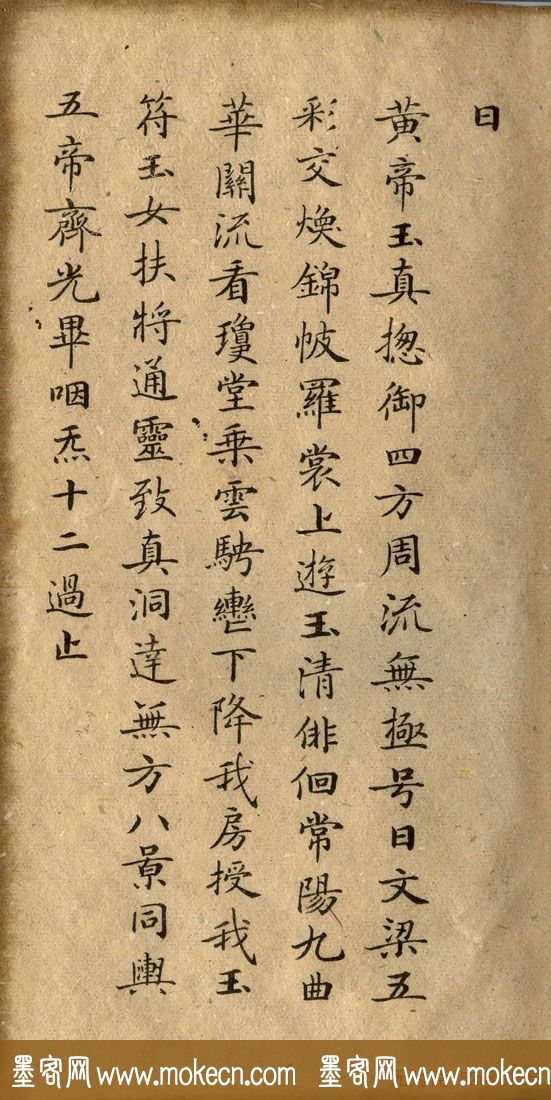 曰
黄帝玉真揔御四方周流無極号曰文梁五
彩交焕錦帔羅裳上遊玉清俳佪常陽九曲
華關流看瓊堂乗雲騁轡下降我房授我玉
符玉女扶將通靈致真洞達無方八景同輿
五帝齊光畢咽炁十二過止
墨客网 www.mokecn.com 墨客网 www.mokecn.com